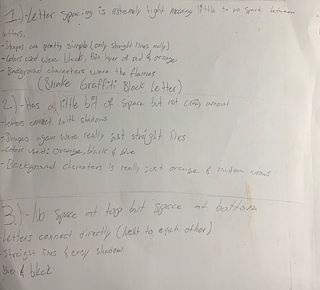 1.) - Letter spacing is extremely tight meaning little to no space between
letters.
- Shapes are pretty simple (only straight lines, really)
- Colors used were black, thin layer of red & orange
- Background characters were the flames
(Shake Graffiti Block Letter)
2.) - Has a little bit of space but not crazy amount
- Letters connect with shadows
- Shapes again were really just straight lines
- Colors used: orange, black & blue
- Background characters is really just orange, & random
3.) - No space at top but space at bottom
- Letters connect directly (Next to each other)
- Straight lines & easy shadow
blue & black